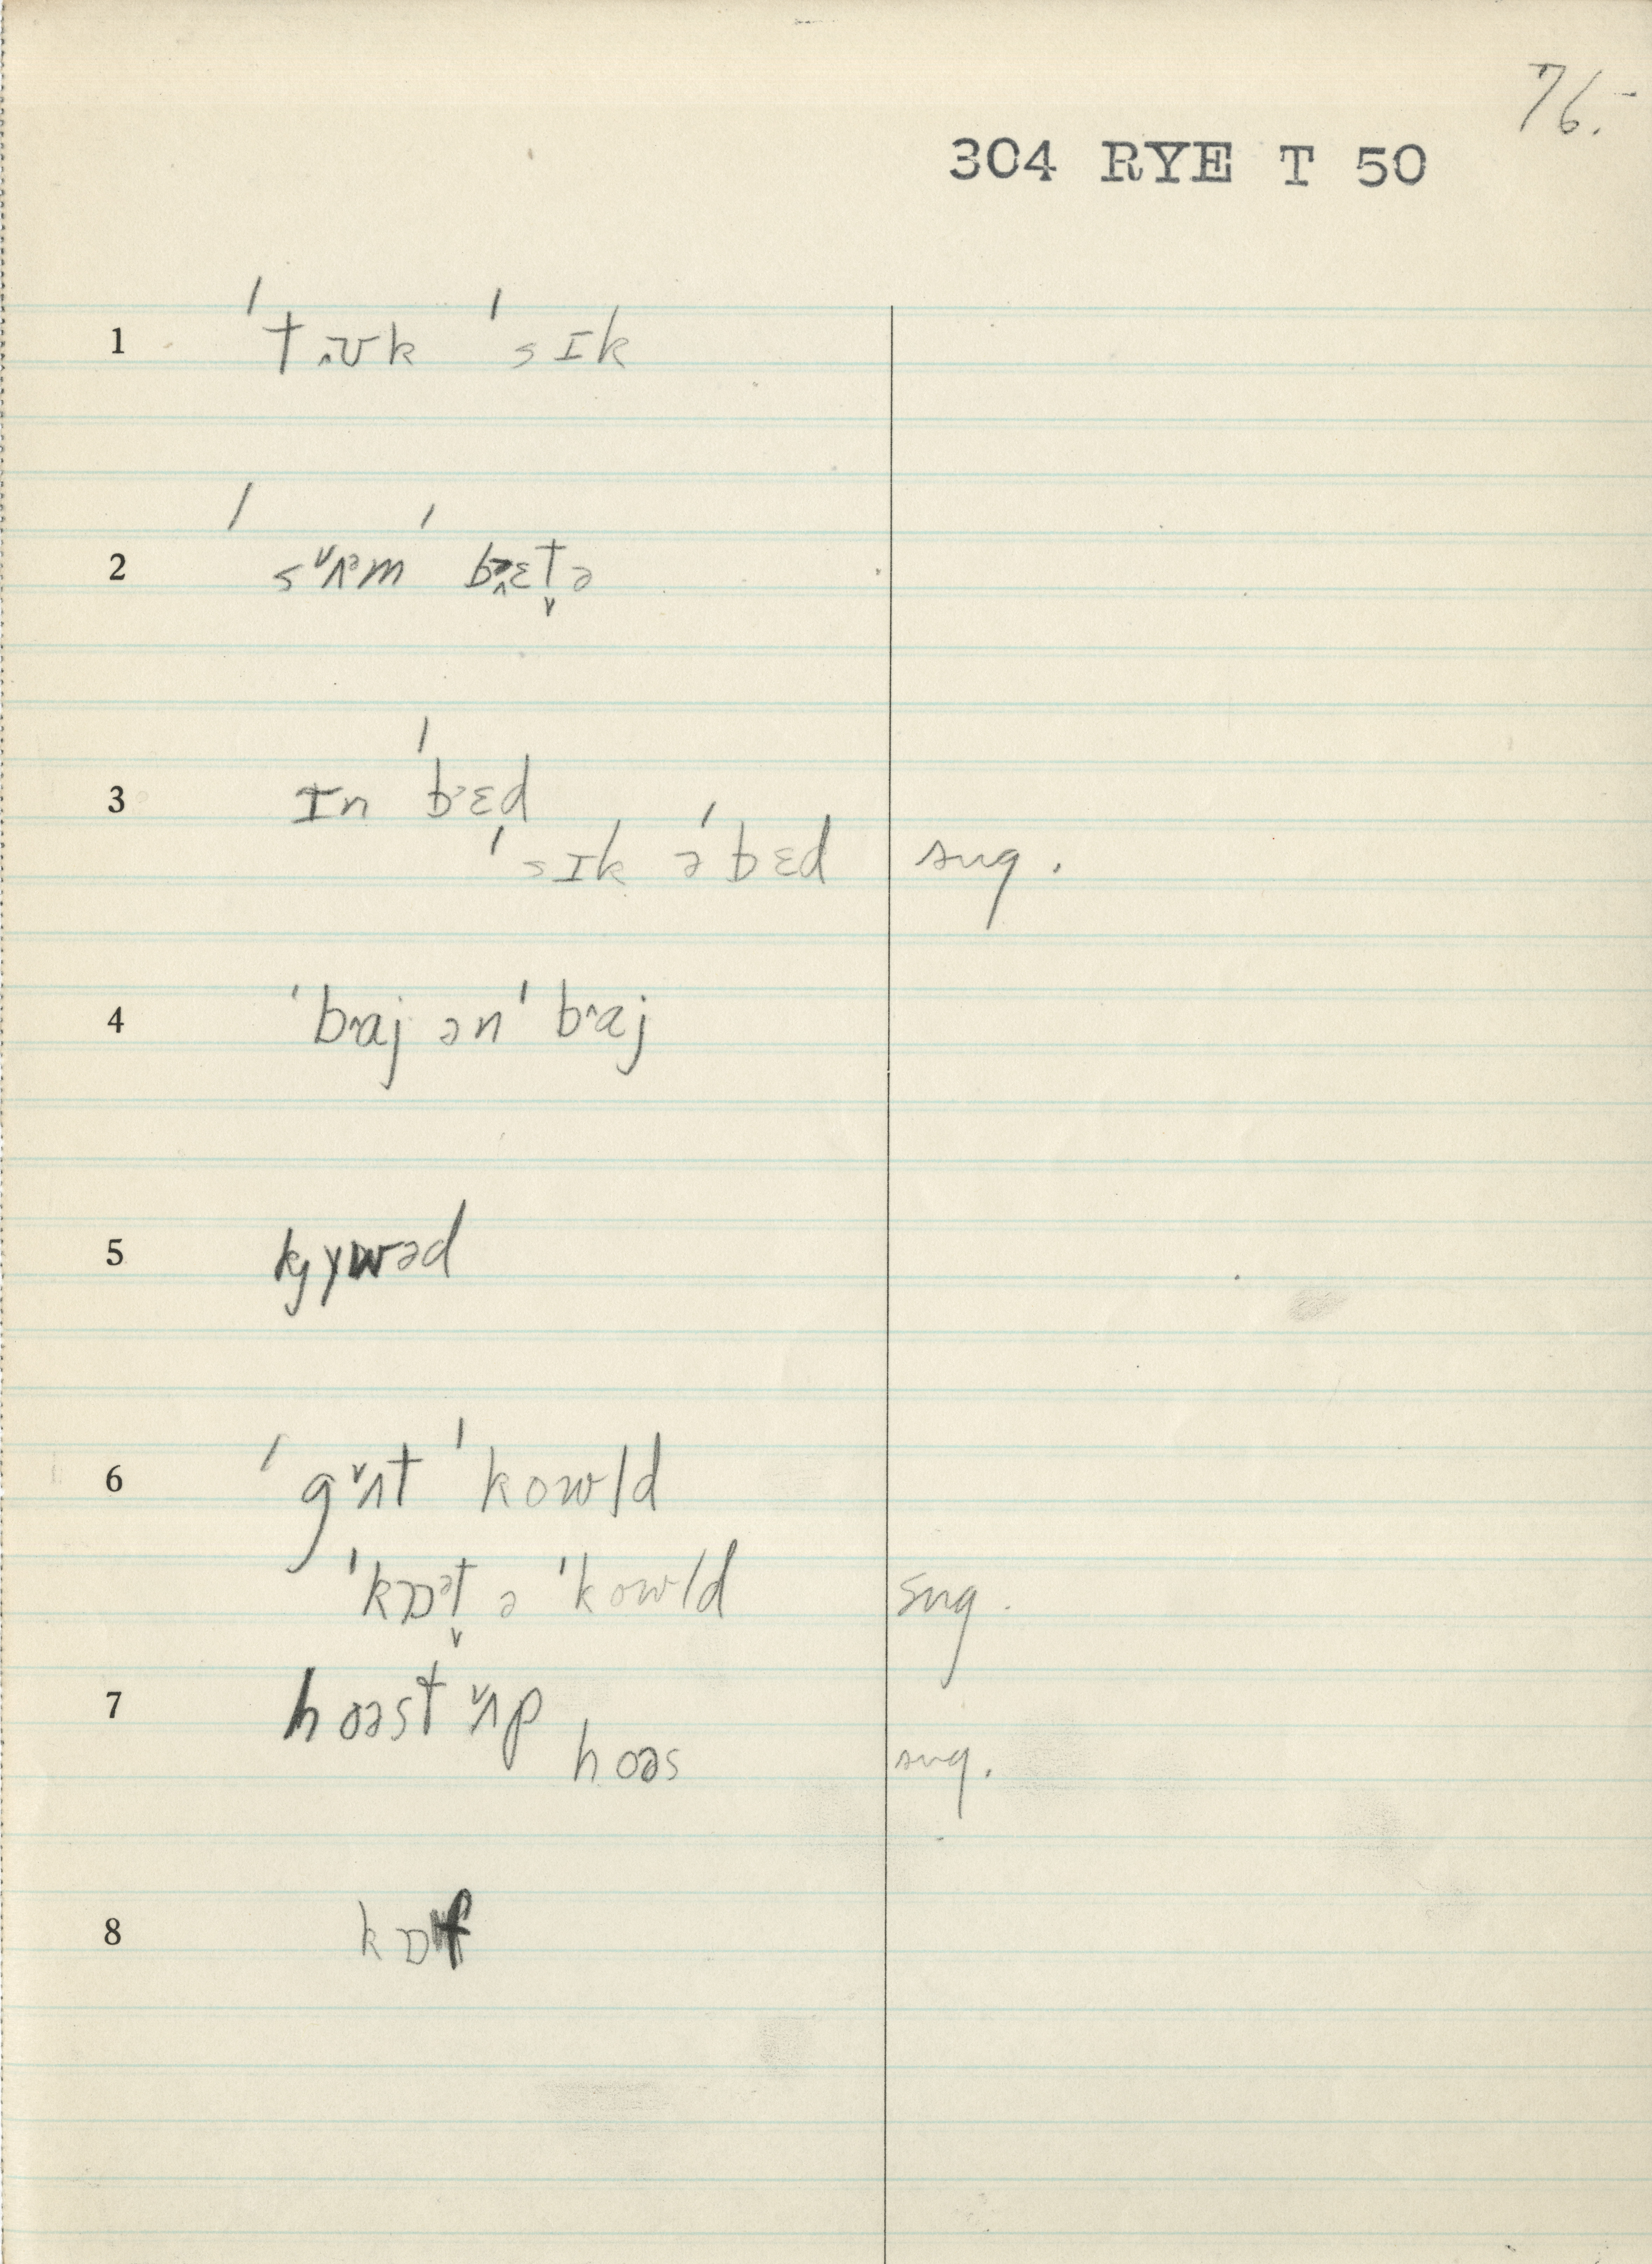 76.-
304 RYE T 50
1 ˈtʊk ˈsɪk
2 ˈsʌᵊm ˈbɛt̬ə
3 ɪn ˈbɛd
ˈsɪk əˈbɛd sug.
4 ˈbaj ən ˈbaj
5 kjywəd
6 ˈgʌt ˈkowld
ˈkɒᵊt̬ ə ˈkowld sug.
7 hoəst ʌp
hoəs sug.
8 kɒf